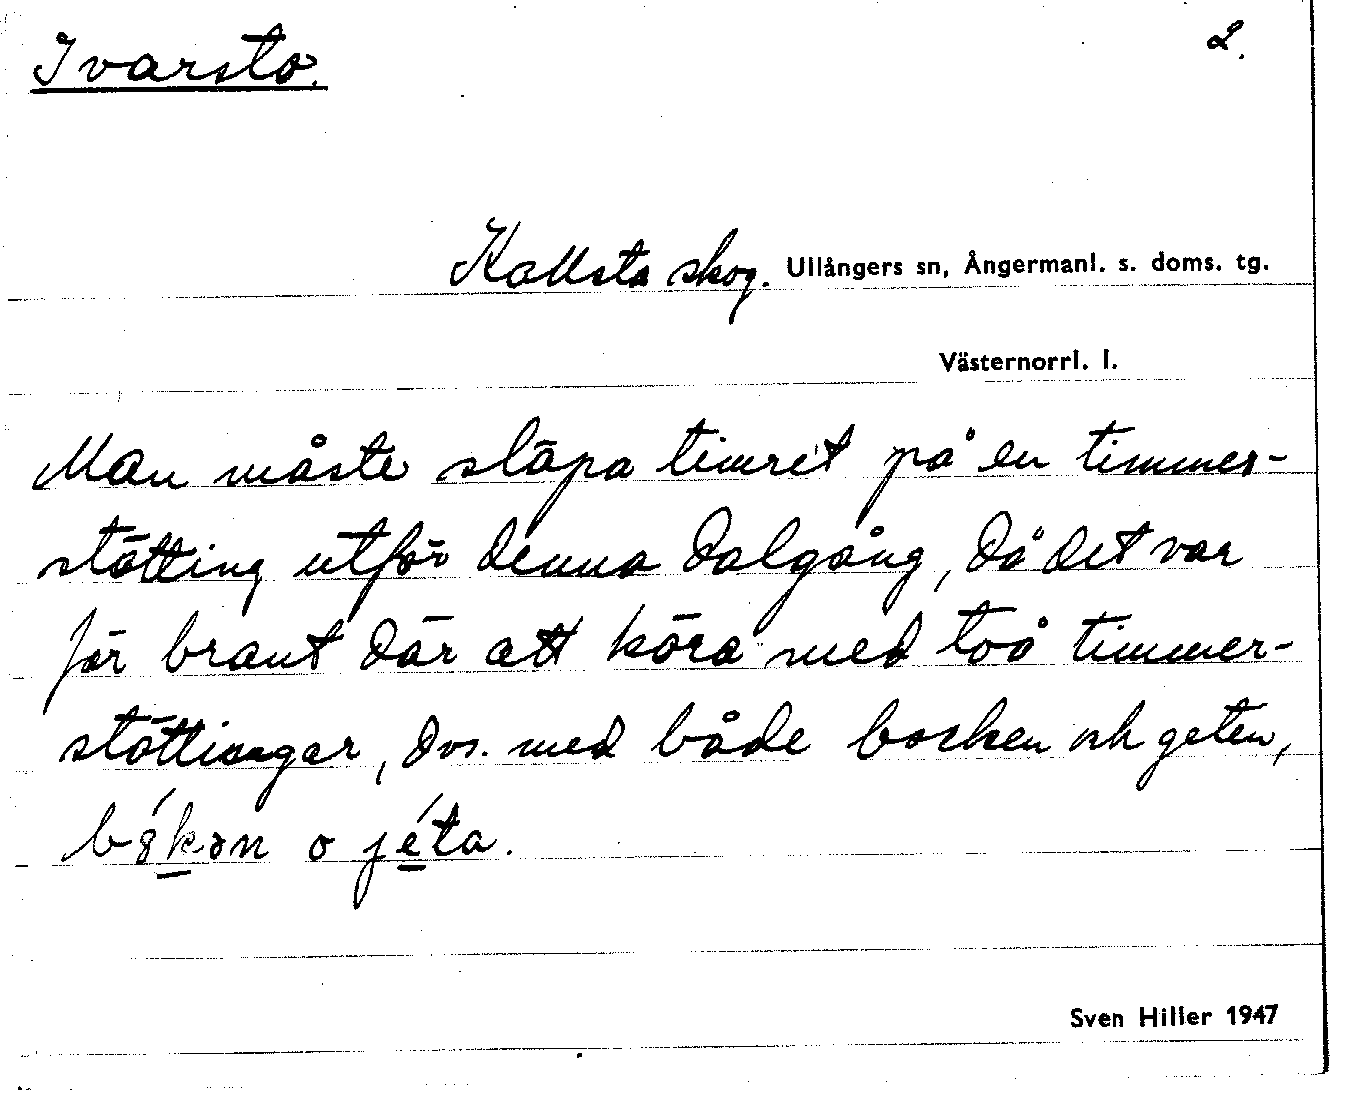 Ivarsto. 2.
Kallsta skog. Ullångers sn, Ångermanl. s. doms. tg.
Västernorrl. l.
Man måste släpa timret på en timmer-
stötting utför denna dalgång, då det var
för brant där att köra med två timmer-
stöttingar, dvs. med både bocken och geten,
o jéta.
Sven Hiller 1947